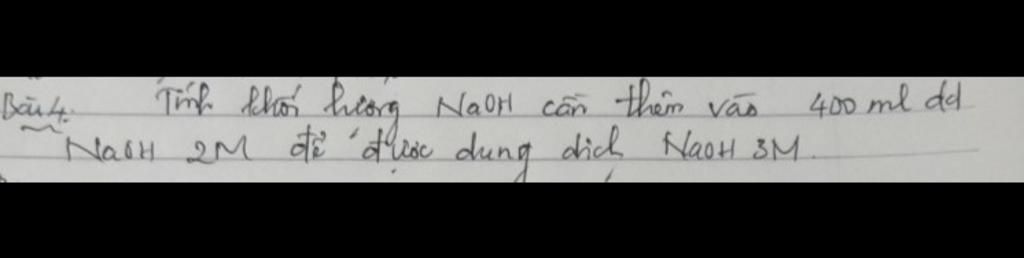 Bài 4. Tính khối lượng NaOH cần thêm vào 400 ml dd
NaOH 2M để được dung dịch NaOH 3M.